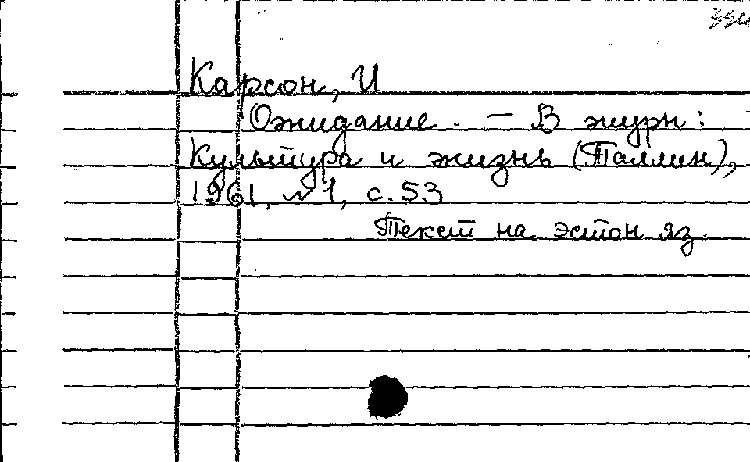 Карсон, И
Ожидание. — В журн:
Культура и жизнь (Таллин),
1961, №1, с. 53
Текст на эстон яз.